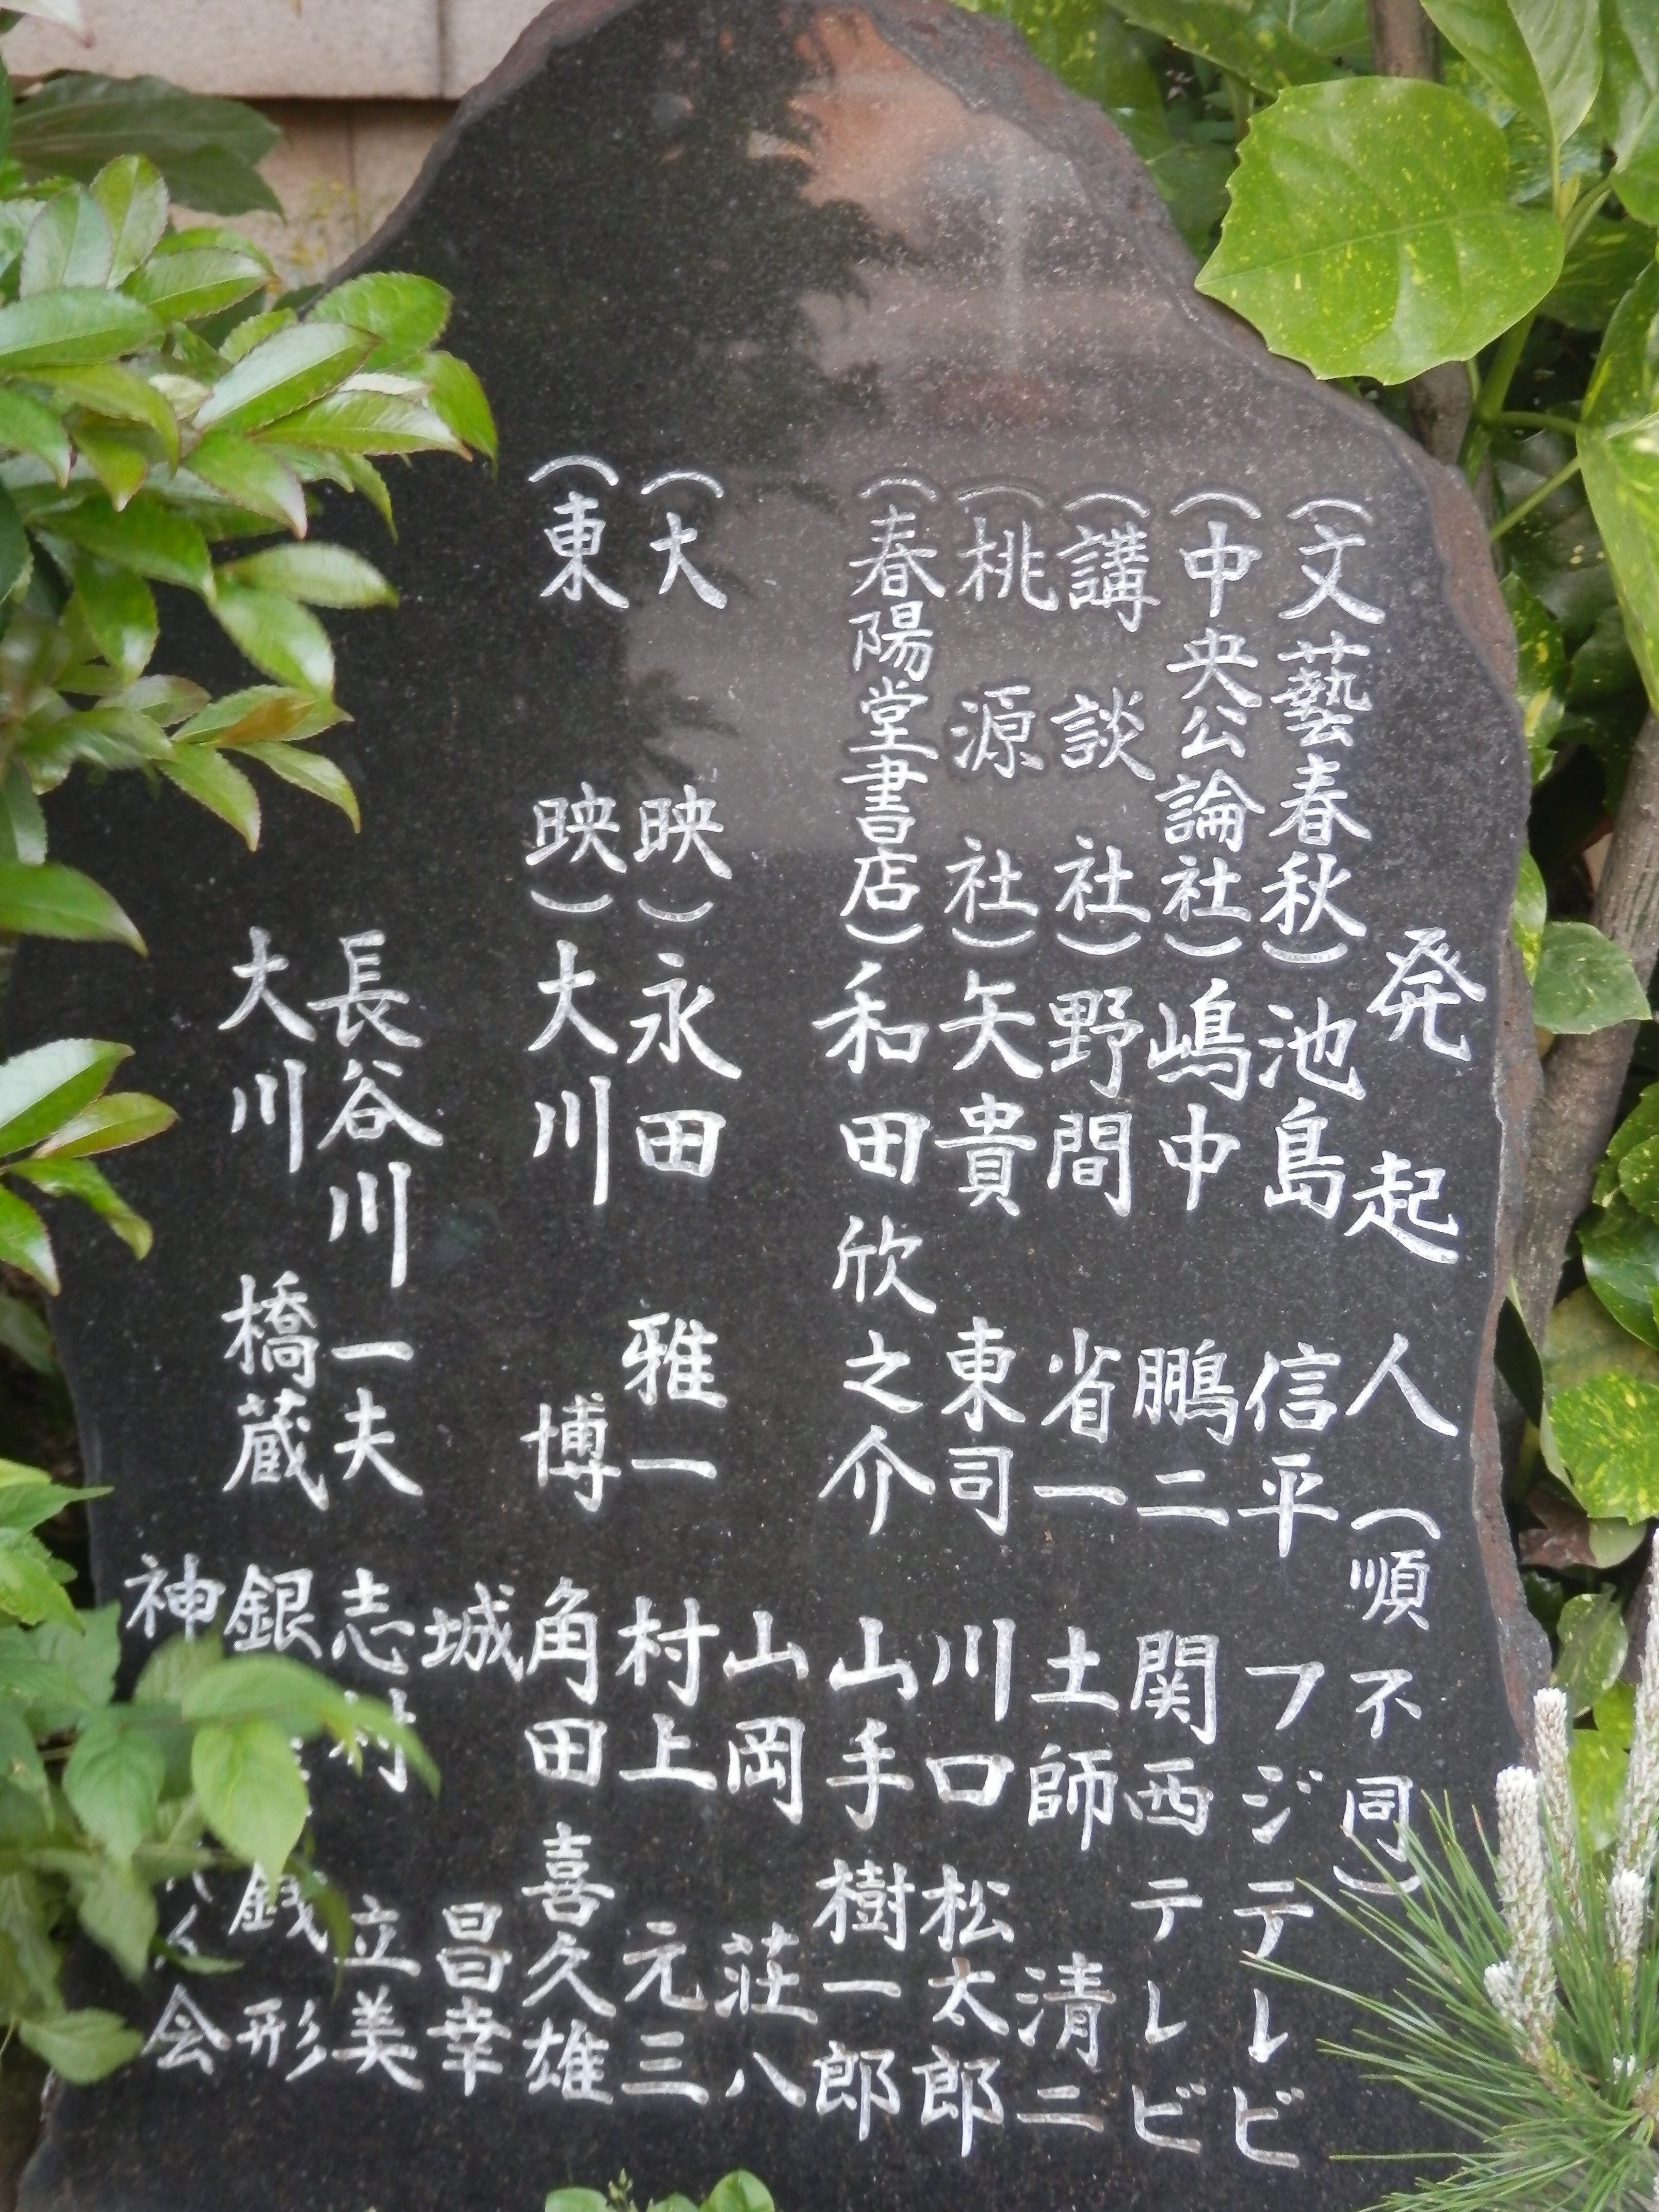 発起人（順不同）
（文藝春秋）池島信平
（中央公論社）嶋中鵬二
（講談社）野間省一
（桃源社）矢貴東司
（春陽堂書店）和田欣之介
（大映）永田雅一
（東映）大川博
長谷川一夫
大川橋蔵
フジテレビ
関西テレビ
土師清二
川口松太郎
山手樹一郎
山岡荘八
村上元三
角田喜久雄
城昌幸
志村立美
銀 銭形
神 会